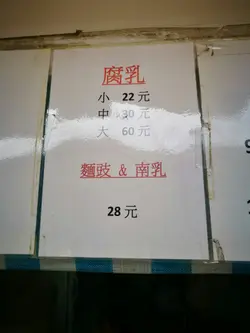 腐乳
小 22 元
中 30 元
大 60 元
麵豉 & 南乳
28 元